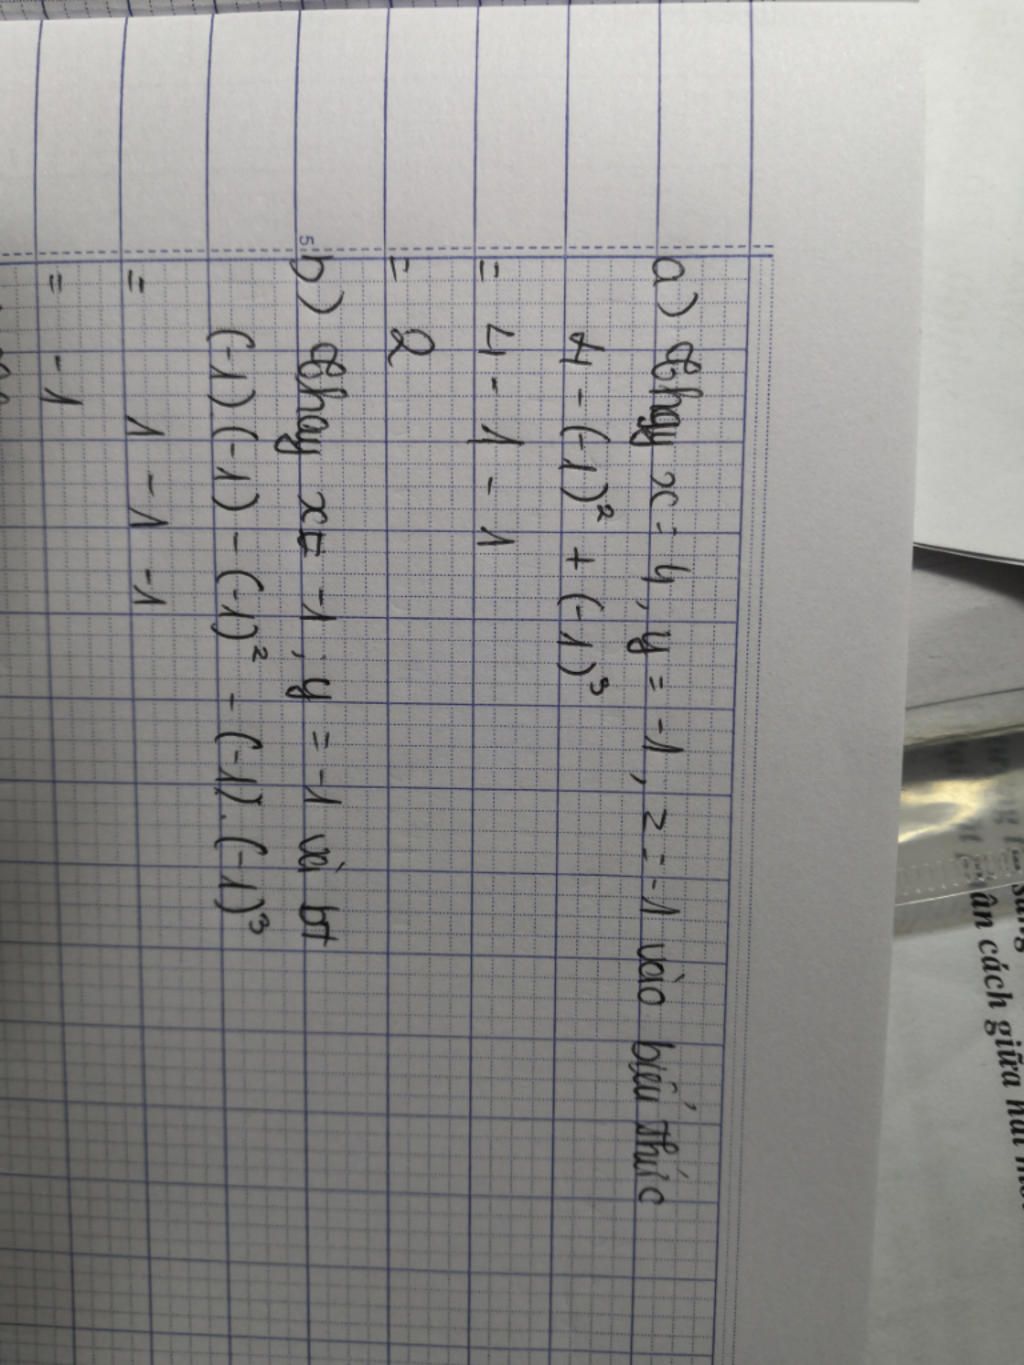 a) Thay x = 4, y = -1, z = -1 vào biểu thức
4 - (-1)² + (-1)³
= 4 - 1 - 1
= 2
5
b) Thay x = -1, y = -1 và bt
(-1)(-1) - (-1)² - (-1).(-1)³
= 1 - 1 - 1
= -1
sáng
ân cách giữa hai